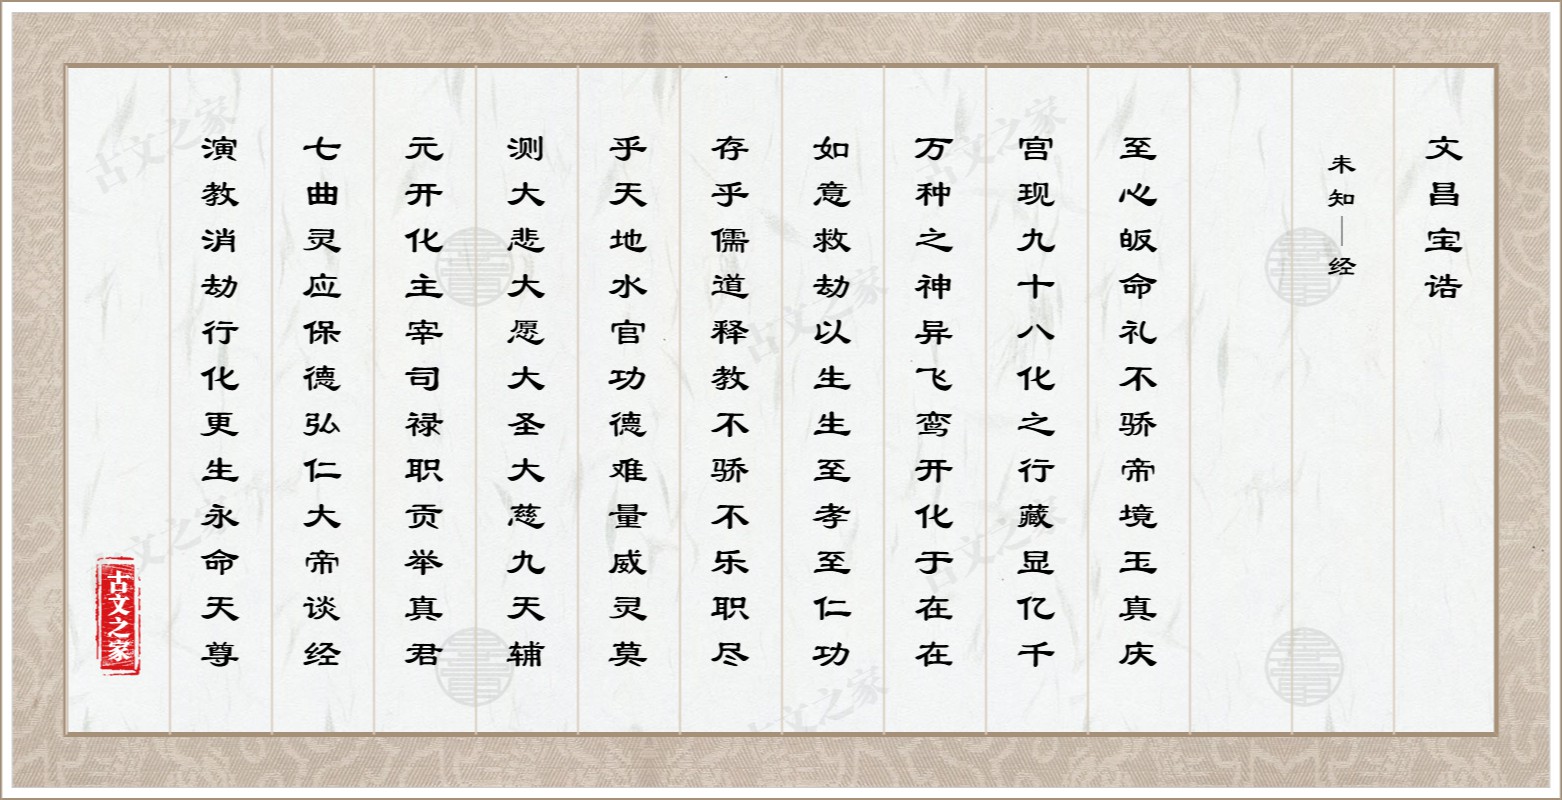 文昌宝诰
未知—经
至心皈命礼不骄帝境玉真庆
宫现九十八化之行藏显亿千
万种之神异飞鸾开化于在在
如意救劫以生生至孝至仁功
存乎儒道释教不骄不乐职尽
乎天地水官功德难量威灵莫
测大悲大愿大圣大慈九天辅
元开化主宰司禄职贡举真君
七曲灵应保德弘仁大帝谈经
演教消劫行化更生永命天尊
古文之家